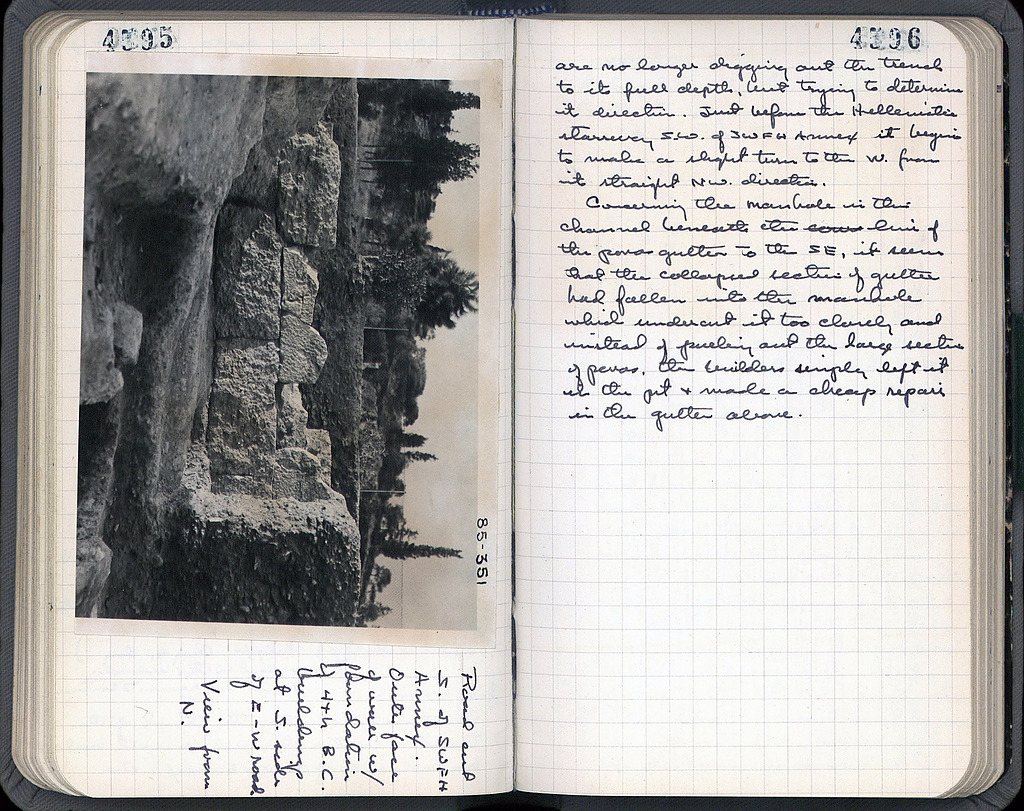 4395
85-351
Road and
S. of SWFH
Annex.
Outer face
of wall w/
foundation
of 4th B.C.
building
at S. side
of E-W road.
View from
N.
4396
are no longer digging out the trench
to its full depth, but trying to determine
it direction. Just before the Hellenistic
stairway S.W. of SWFH Annex it begins
to make a slight turn to the W. from
its straight NW. direction.
Concerning the manhole in the
channel beneath the line of
the poros gutter to the SE, it seems
that the collapsed section of gutter
had fallen into the manhole
which undercut it too closely and
instead of pulling out the large section
of poros, the builders simply left it
in the pit + made a cheap repair
in the gutter above.